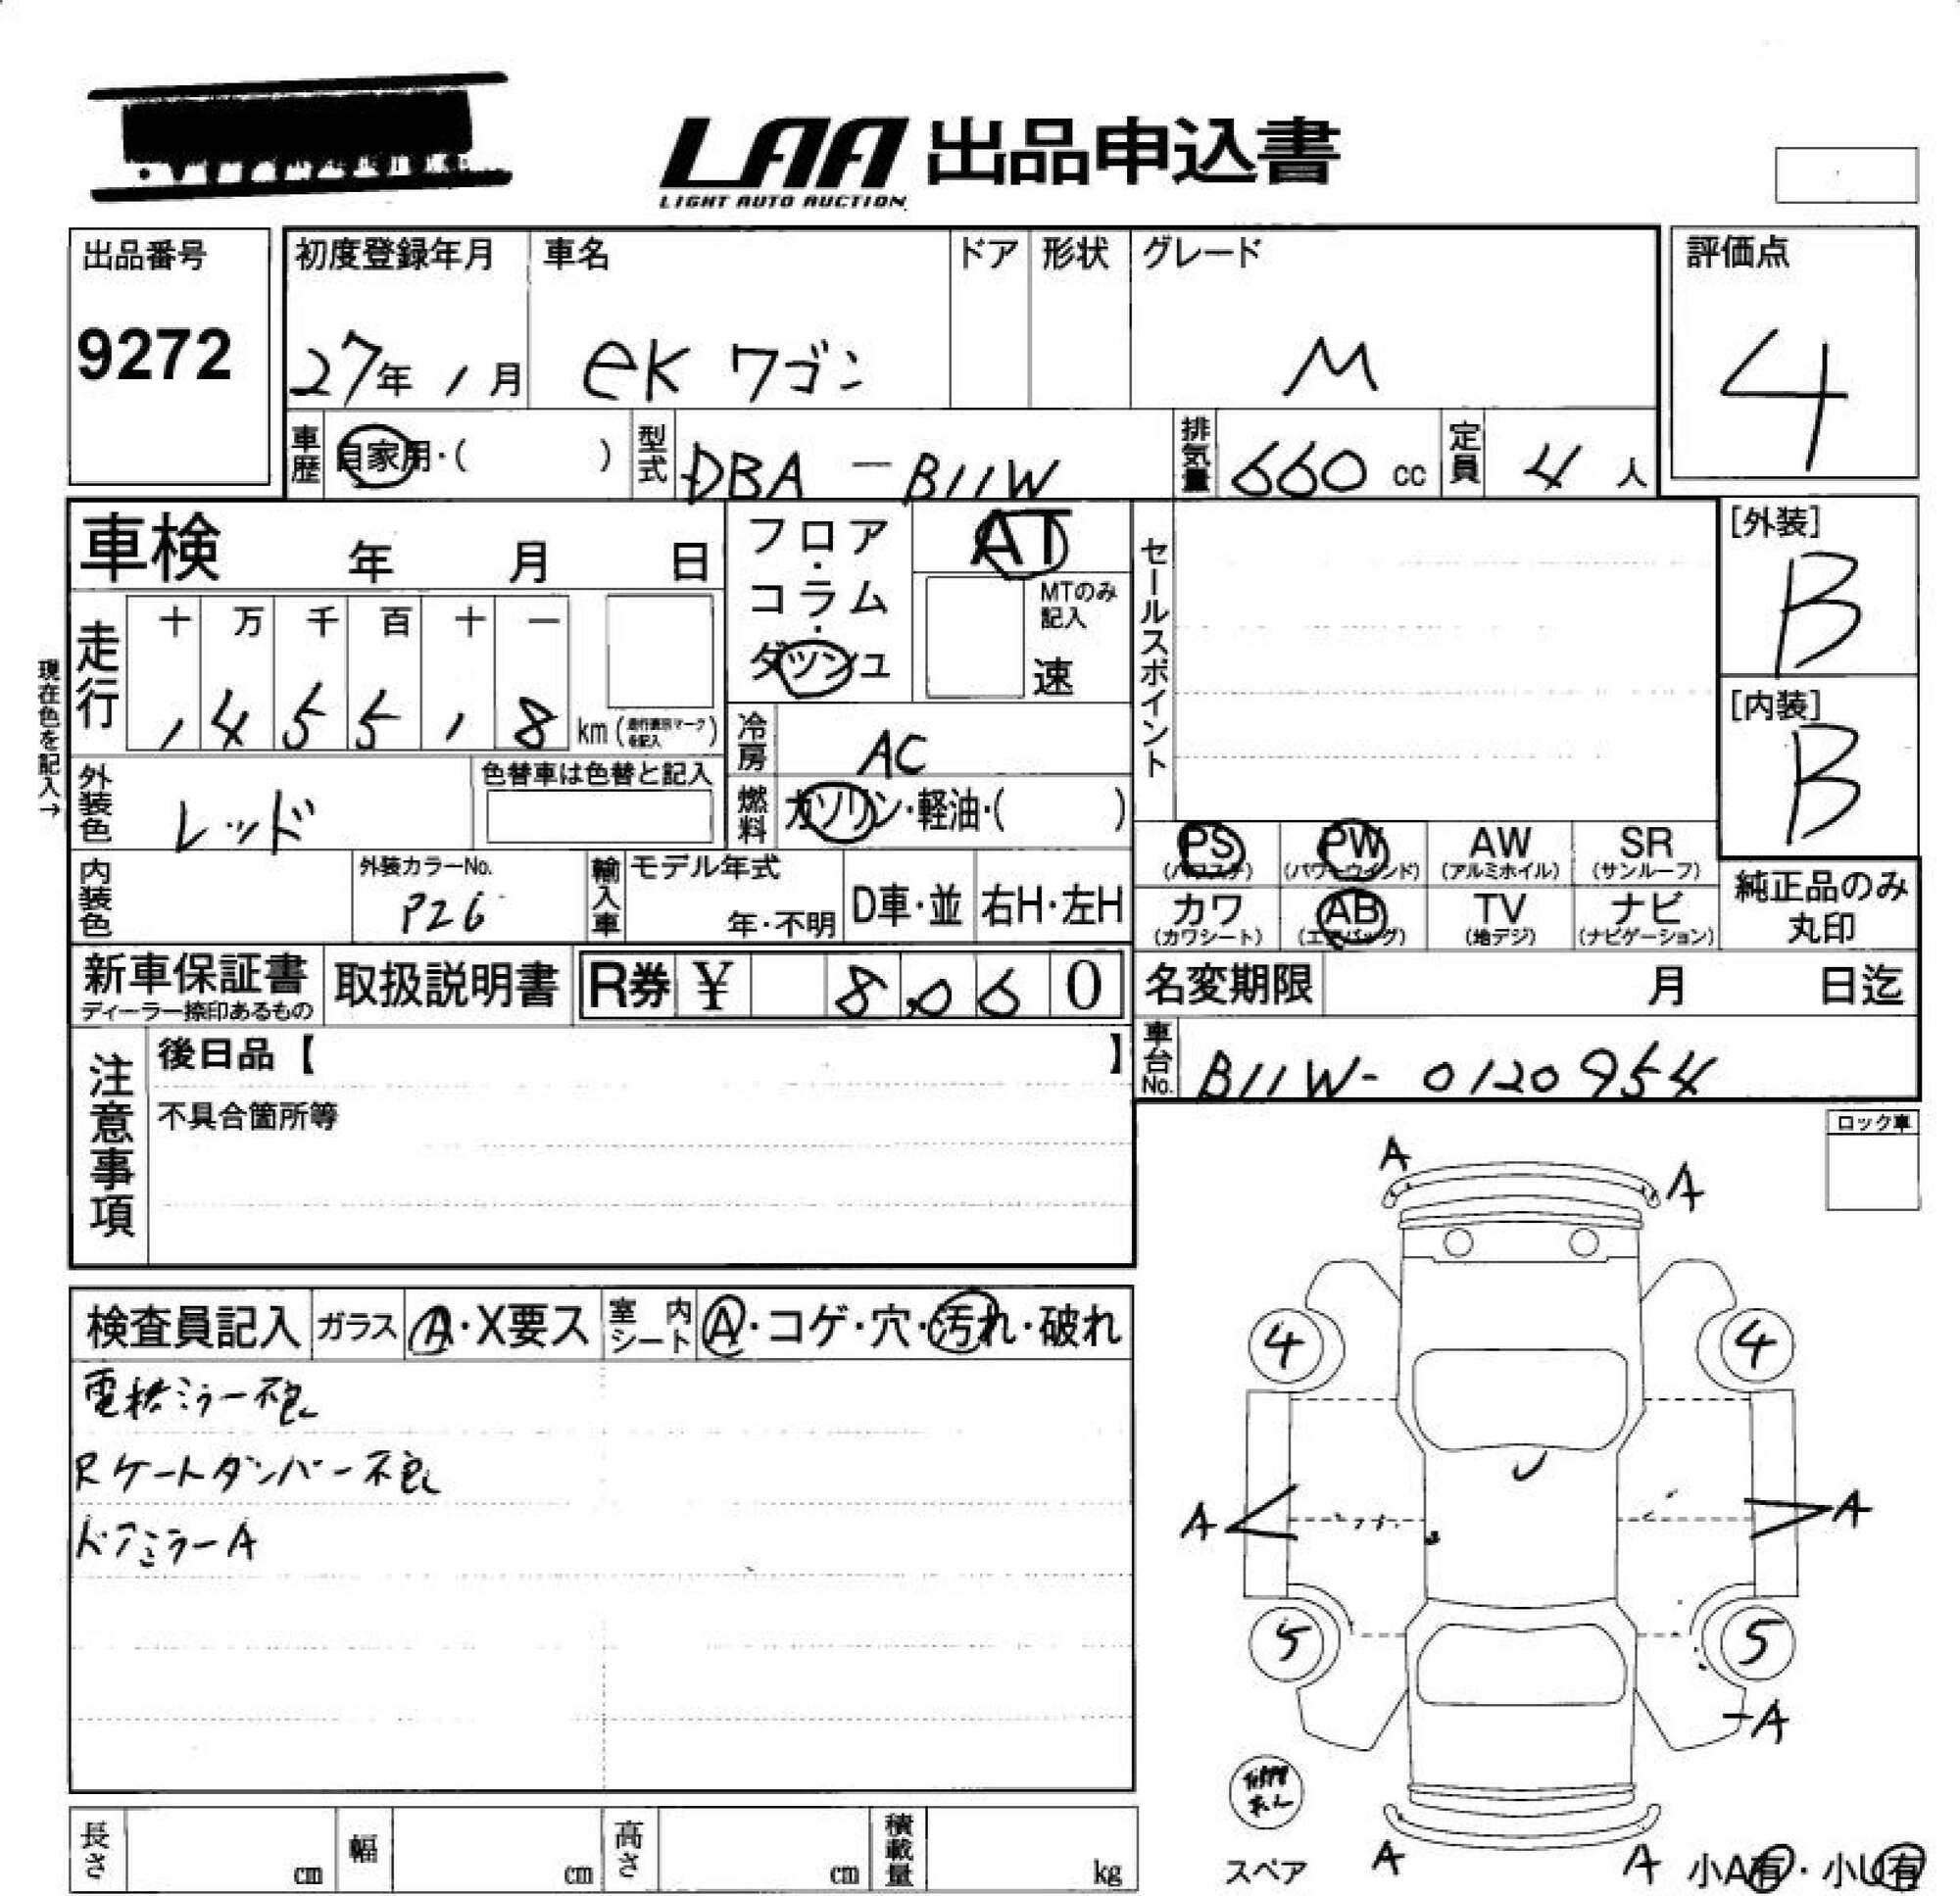 LAA 出品申込書
LIGHT AUTO AUCTION
出品番号
9272
初度登録年月
27年 1月
車名
eK ワゴン
ドア
形状
グレード
M
評価点
4
車歴
自家用・( )
型式
DBA-B11W
排気量
660 cc
定員
4 人
車検 年 月 日
フロア・コラム・ダッシュ
AT
MTのみ記入
速
セールスポイント
[外装]
B
[内装]
B
現在色を記入→
走行
十 万 千 百 十 一
1 4 5 5 1 8 km (走行表示マークを記入)
冷房
AC
外装色
レッド
色替車は色替と記入
燃料
ガソリン・軽油・( )
PS (パワステ)
PW (パワーウインド)
AW (アルミホイル)
SR (サンルーフ)
カワ (カワシート)
AB (エアバッグ)
TV (地デジ)
ナビ (ナビゲーション)
純正品のみ丸印
内装色
外装カラーNo.
P26
輸入車
モデル年式
年・不明
D車・並
右H・左H
新車保証書
ディーラー捺印あるもの
取扱説明書
R券 ¥ 8,060
名変期限 月 日迄
車台No.
B11W-0120954
注意事項
後日品【 】
不具合箇所等
ロック車
検査員記入
ガラス
A・X要ス
室内シート
A・コゲ・穴・汚れ・破れ
電格ミラー不良
Rゲートダンパー不良
ドアミラーA
A
A
4
4
U
A
A
5
5
A
スペア
A
A
小A有・小U有
長さ cm
幅 cm
高さ cm
積載量 kg